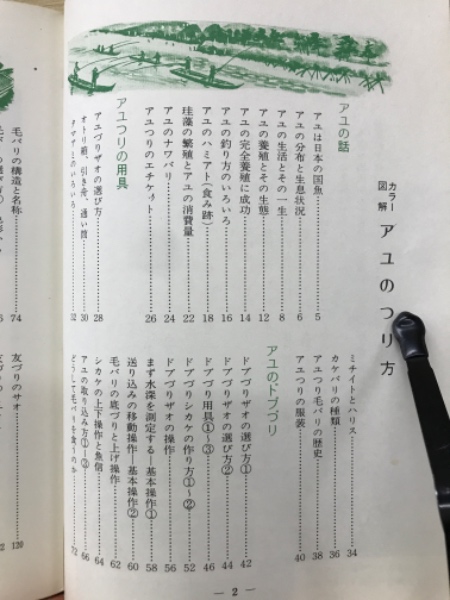 カラー図解 アユのつり方
アユの話
アユは日本の国魚……5
アユの分布と生息状況……6
アユの生活とその一生……8
アユの養殖とその生態……12
アユの完全養殖に成功……14
アユの釣り方のいろいろ……16
アユのハミアト(食み跡)……18
珪藻の繁殖とアユの消費量……22
アユのナワバリ……24
アユつりのエチケット……26
アユつりの用具
アユづりザオの選び方……28
オトリ箱、引き舟、通い筒……30
タマアミのいろいろ……32
ミチイトとハリス……34
カケバリの種類……36
アユつり毛バリの歴史……38
アユつりの服装……40
アユのドブづり
ドブづりザオの選び方①……42
ドブづりザオの選び方②……44
ドブづり用具①〜③……46
ドブづりシカケの作り方①〜②……52
ドブづりザオの操作……56
まず水深を測定する―基本操作①……58
送り込みの移動操作―基本操作②……60
毛バリの底づりと上げ操作……62
シカケの上下操作と魚信……64
アユの取り込み方①〜③……66
どうして毛バリを食うのか……72
― 2 ―
毛バリの構造と名称……74
友づりのサオ……120